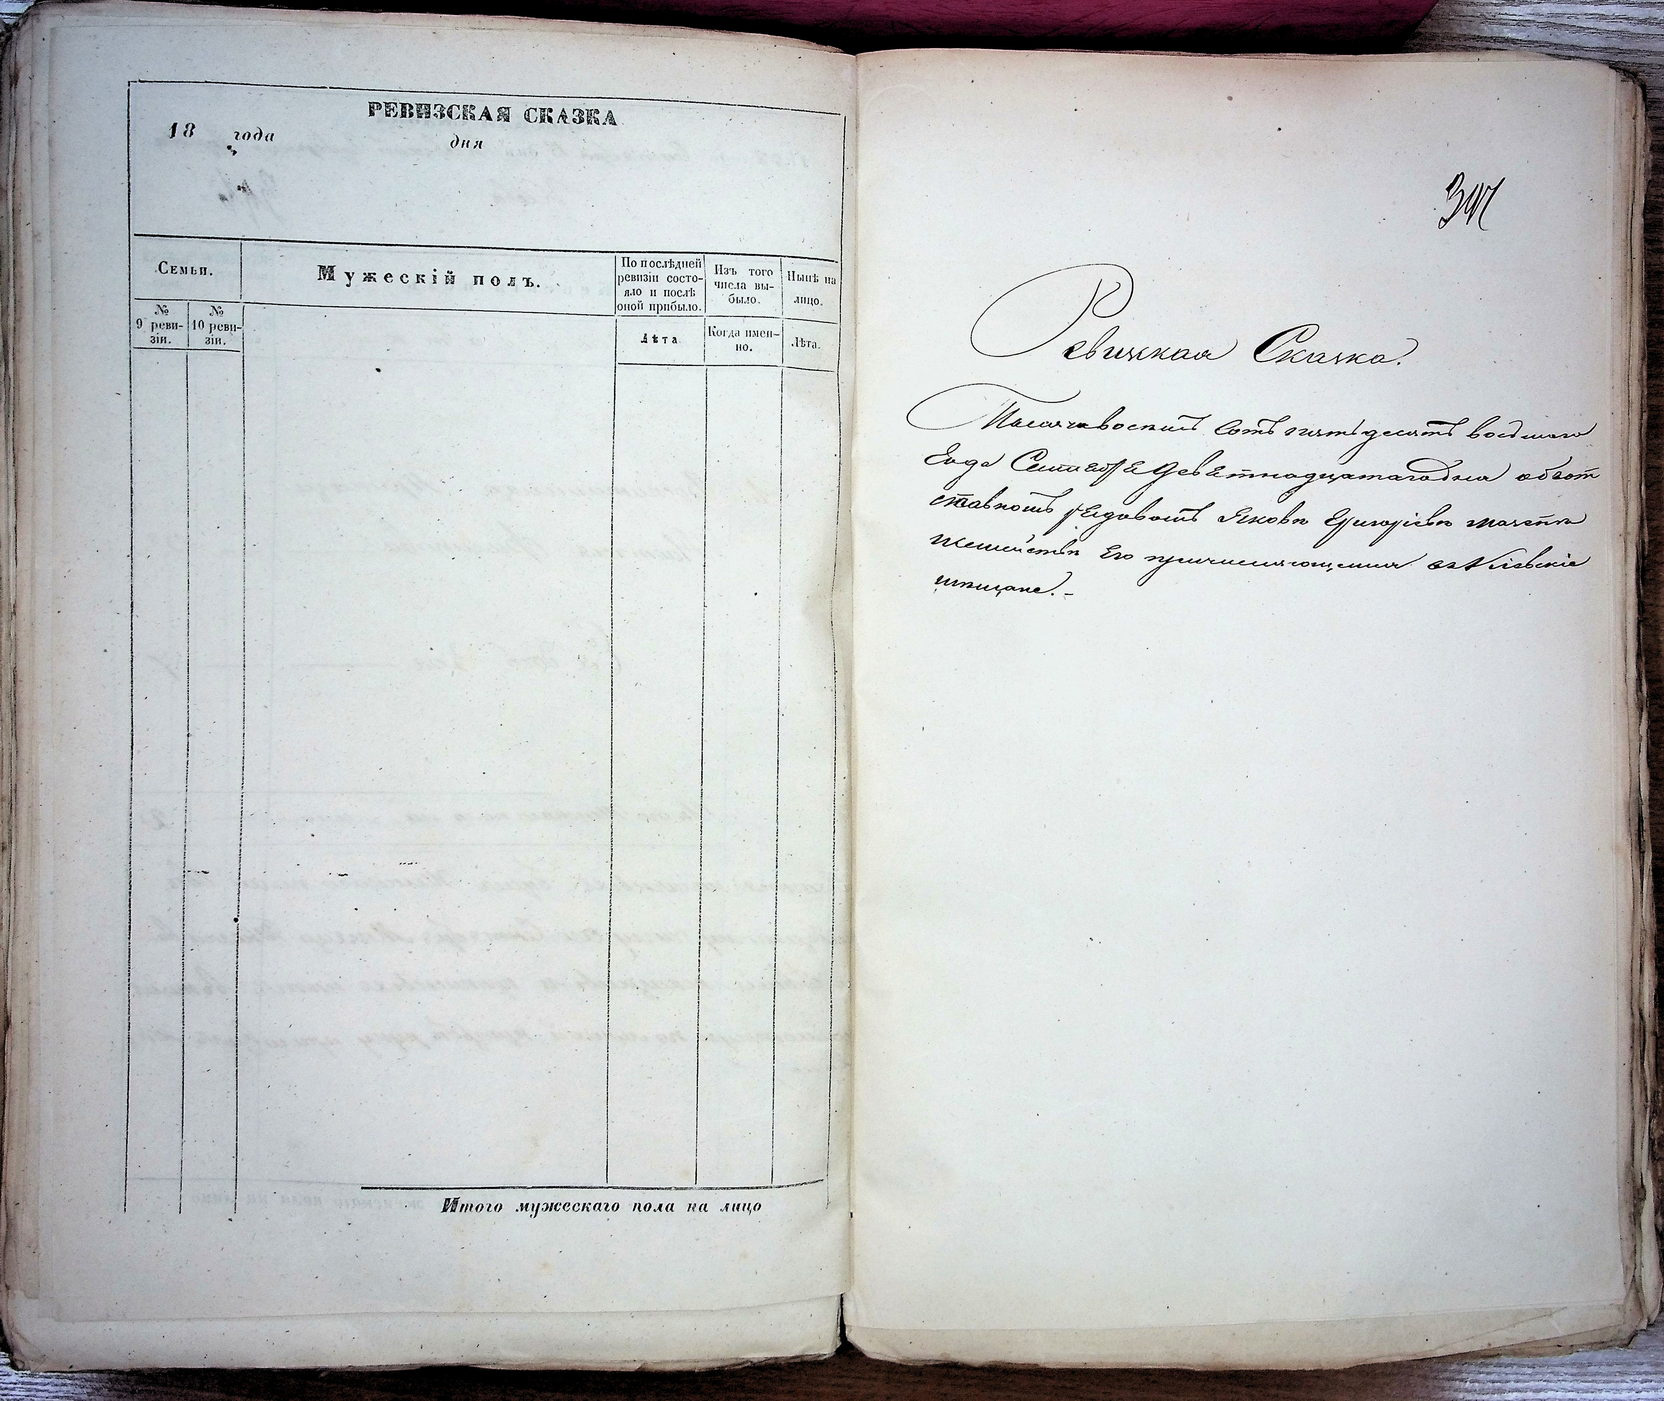 РЕВИЗСКАЯ СКАЗКА
18 года дня
Семьи.
Мужескій полъ.
По послѣдней
ревизіи состо-
яло и послѣ
оной прибыло.
Изъ того
числа вы-
было.
Нынѣ на
лицо.
№
9 реви-
зіи.
№
10 реви-
зіи.
Лѣта
Когда имен-
но.
Лѣта.
Итого мужескаго пола на лицо
Ревизская Сказка.
Тысяча восемь сотъ пятьдесятъ восьмаго
Года Сентября девятнадцатаго дня объот
ставномъ рядовомъ Яковѣ Григорьевѣ
исемействѣ Его причисляющемся въ Кіевскіе
мѣщане.